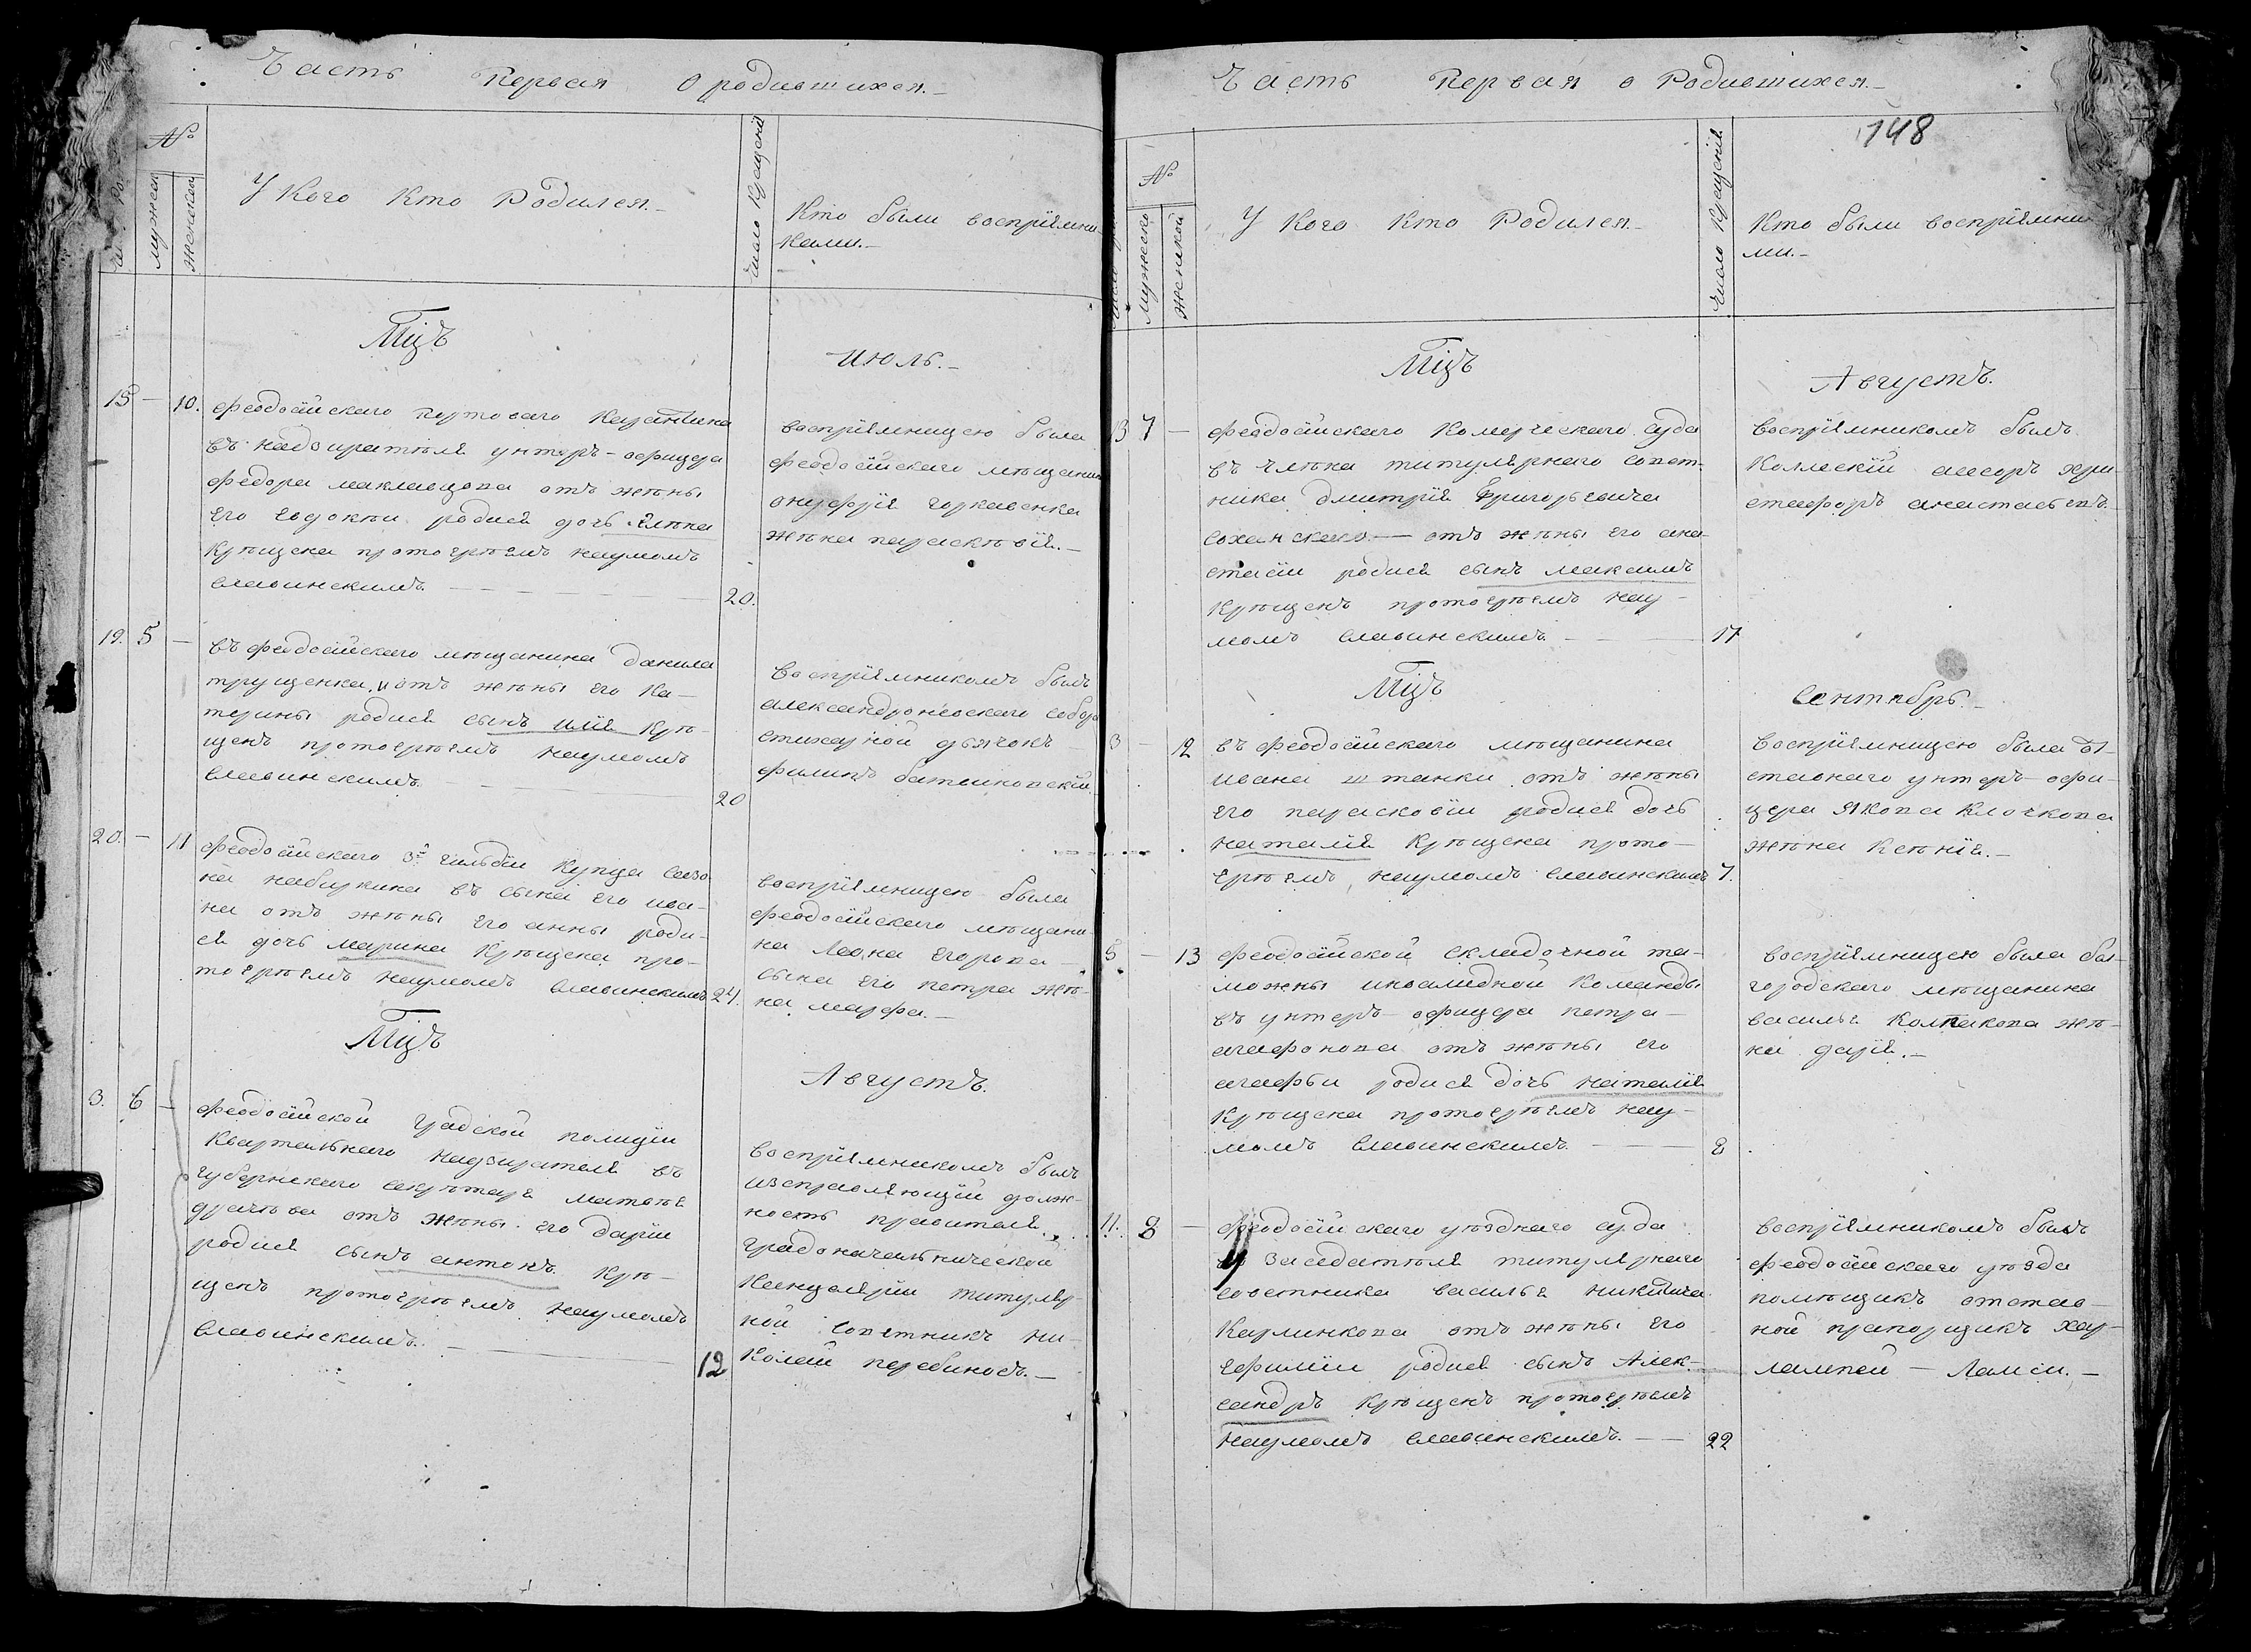 Часть Первая О родившихся.-
№
мужеск
женской
У Кого Кто Родился.-
Число Крещенія
Кто были воспріемни-
ками.-
Мцъ
Июль.-
15 - 10.
Феодосійскаго портоваго Карантина
въ надзирателя унтеръ-офицера
Федора отъ жены
его Евдокіи родися дочь Елена
крещена протоереемъ наумомъ
славинскимъ. 20.
воспріемницею была
Феодосійскаго мещанина
онуфрія
жена параскевія.-
19. 5 -
въ Феодосійскаго мещанина данила
трущенка, и отъ жены его Ка-
терины родися сынъ илія кре-
щенъ протоереемъ наумомъ
славинскимъ. 20
воспріемникомъ былъ
александроневскаго собора
стихарной дьячокъ
филипъ
20. - 11
Феодосійскаго 3й гильдіи Купца сазо-
на набиркина въ сына его ива-
на отъ жены его анны роди-
ся дочь марина крещена про-
тоереемъ наумомъ славинскимъ 24.
воспріемницею была
Феодосійскаго мещани-
на Леона Егорова
сына его петра же-
на марфа.-
Мцъ
Августъ.
3. 6 -
Феодосійской градской полиціи
Квартальнаго надзирателя въ
губернскаго секретаря матвея
отъ жены его даріи
родися сынъ антонъ кре-
щенъ протоереемъ наумомъ
славинскимъ. 12
воспріемникомъ былъ
изправляющій долж-
ность правителя
градоначальнической
Канцеляріи титуляр-
ной советникъ ни-
колай
Часть Первая о Родившихся.-
148
№
мужеско
женской
У Кого Кто Родился.-
Число Крещенія
Кто были воспріемни
ми.-
Мцъ
Августъ.
13 7 -
Феодосійскаго Комерческаго суда
въ члена титулярнаго совет-
ника Дмитрія Григорьевича
соханскаго - отъ жены его ана-
стасіи родися сынъ максимъ
крещенъ протоереемъ нау-
момъ славинскимъ 17
воспріемникомъ былъ
Коллескій асесоръ хри-
стафоръ анастасьевъ.
Мцъ
Сентябрь.-
3 - 12
въ Феодосійскаго мещанина
ивана штанки отъ жены
его парасковіи родися дочь
наталія крещена прото-
ереемъ наумомъ славинскимъ 7.
воспріемницею была от-
ставнаго унтеръ-офи-
цера Якова Клочкова
жена Ксенія.-
5 - 13
Феодосійской складочной та-
можны инвалидной Команды
въ унтеръ-офицера петра
агафонова отъ жены его
агафьи родися дочь наталія
крещена протоереемъ нау-
момъ славинскимъ. 8
воспріемницею была
городскаго мещанина
василья Колпакова же-
на дарія.-
11. 8 -
Феодосійскаго уезднаго суда
въ заседателя титулярнаго
советника василья никитича
Карлинкова отъ жены его
ефиміи родися сынъ Алек-
сандръ крещенъ протоереемъ
наумомъ славинскимъ. 22
воспріемникомъ былъ
Феодосійскаго уезда
помещикъ отстав-
ной прапорщикъ хар-
лампей - Ламси.-